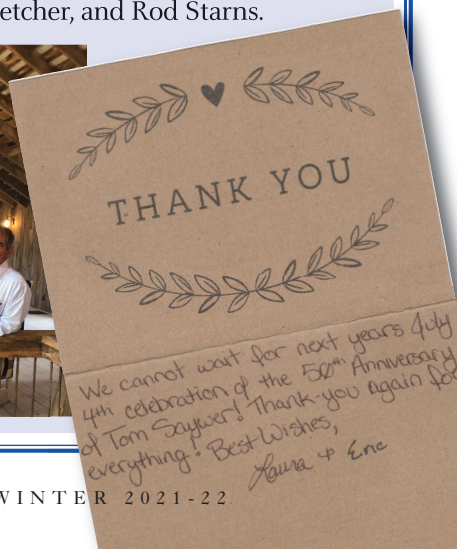 etcher, and Rod Starns.
THANK YOU
We cannot wait for next years July
4th celebration of the 50th Anniversary
of Tom Saywer! Thank-you again for
everything! Best Wishes,
Laura + Eric
WINTER 2021-22